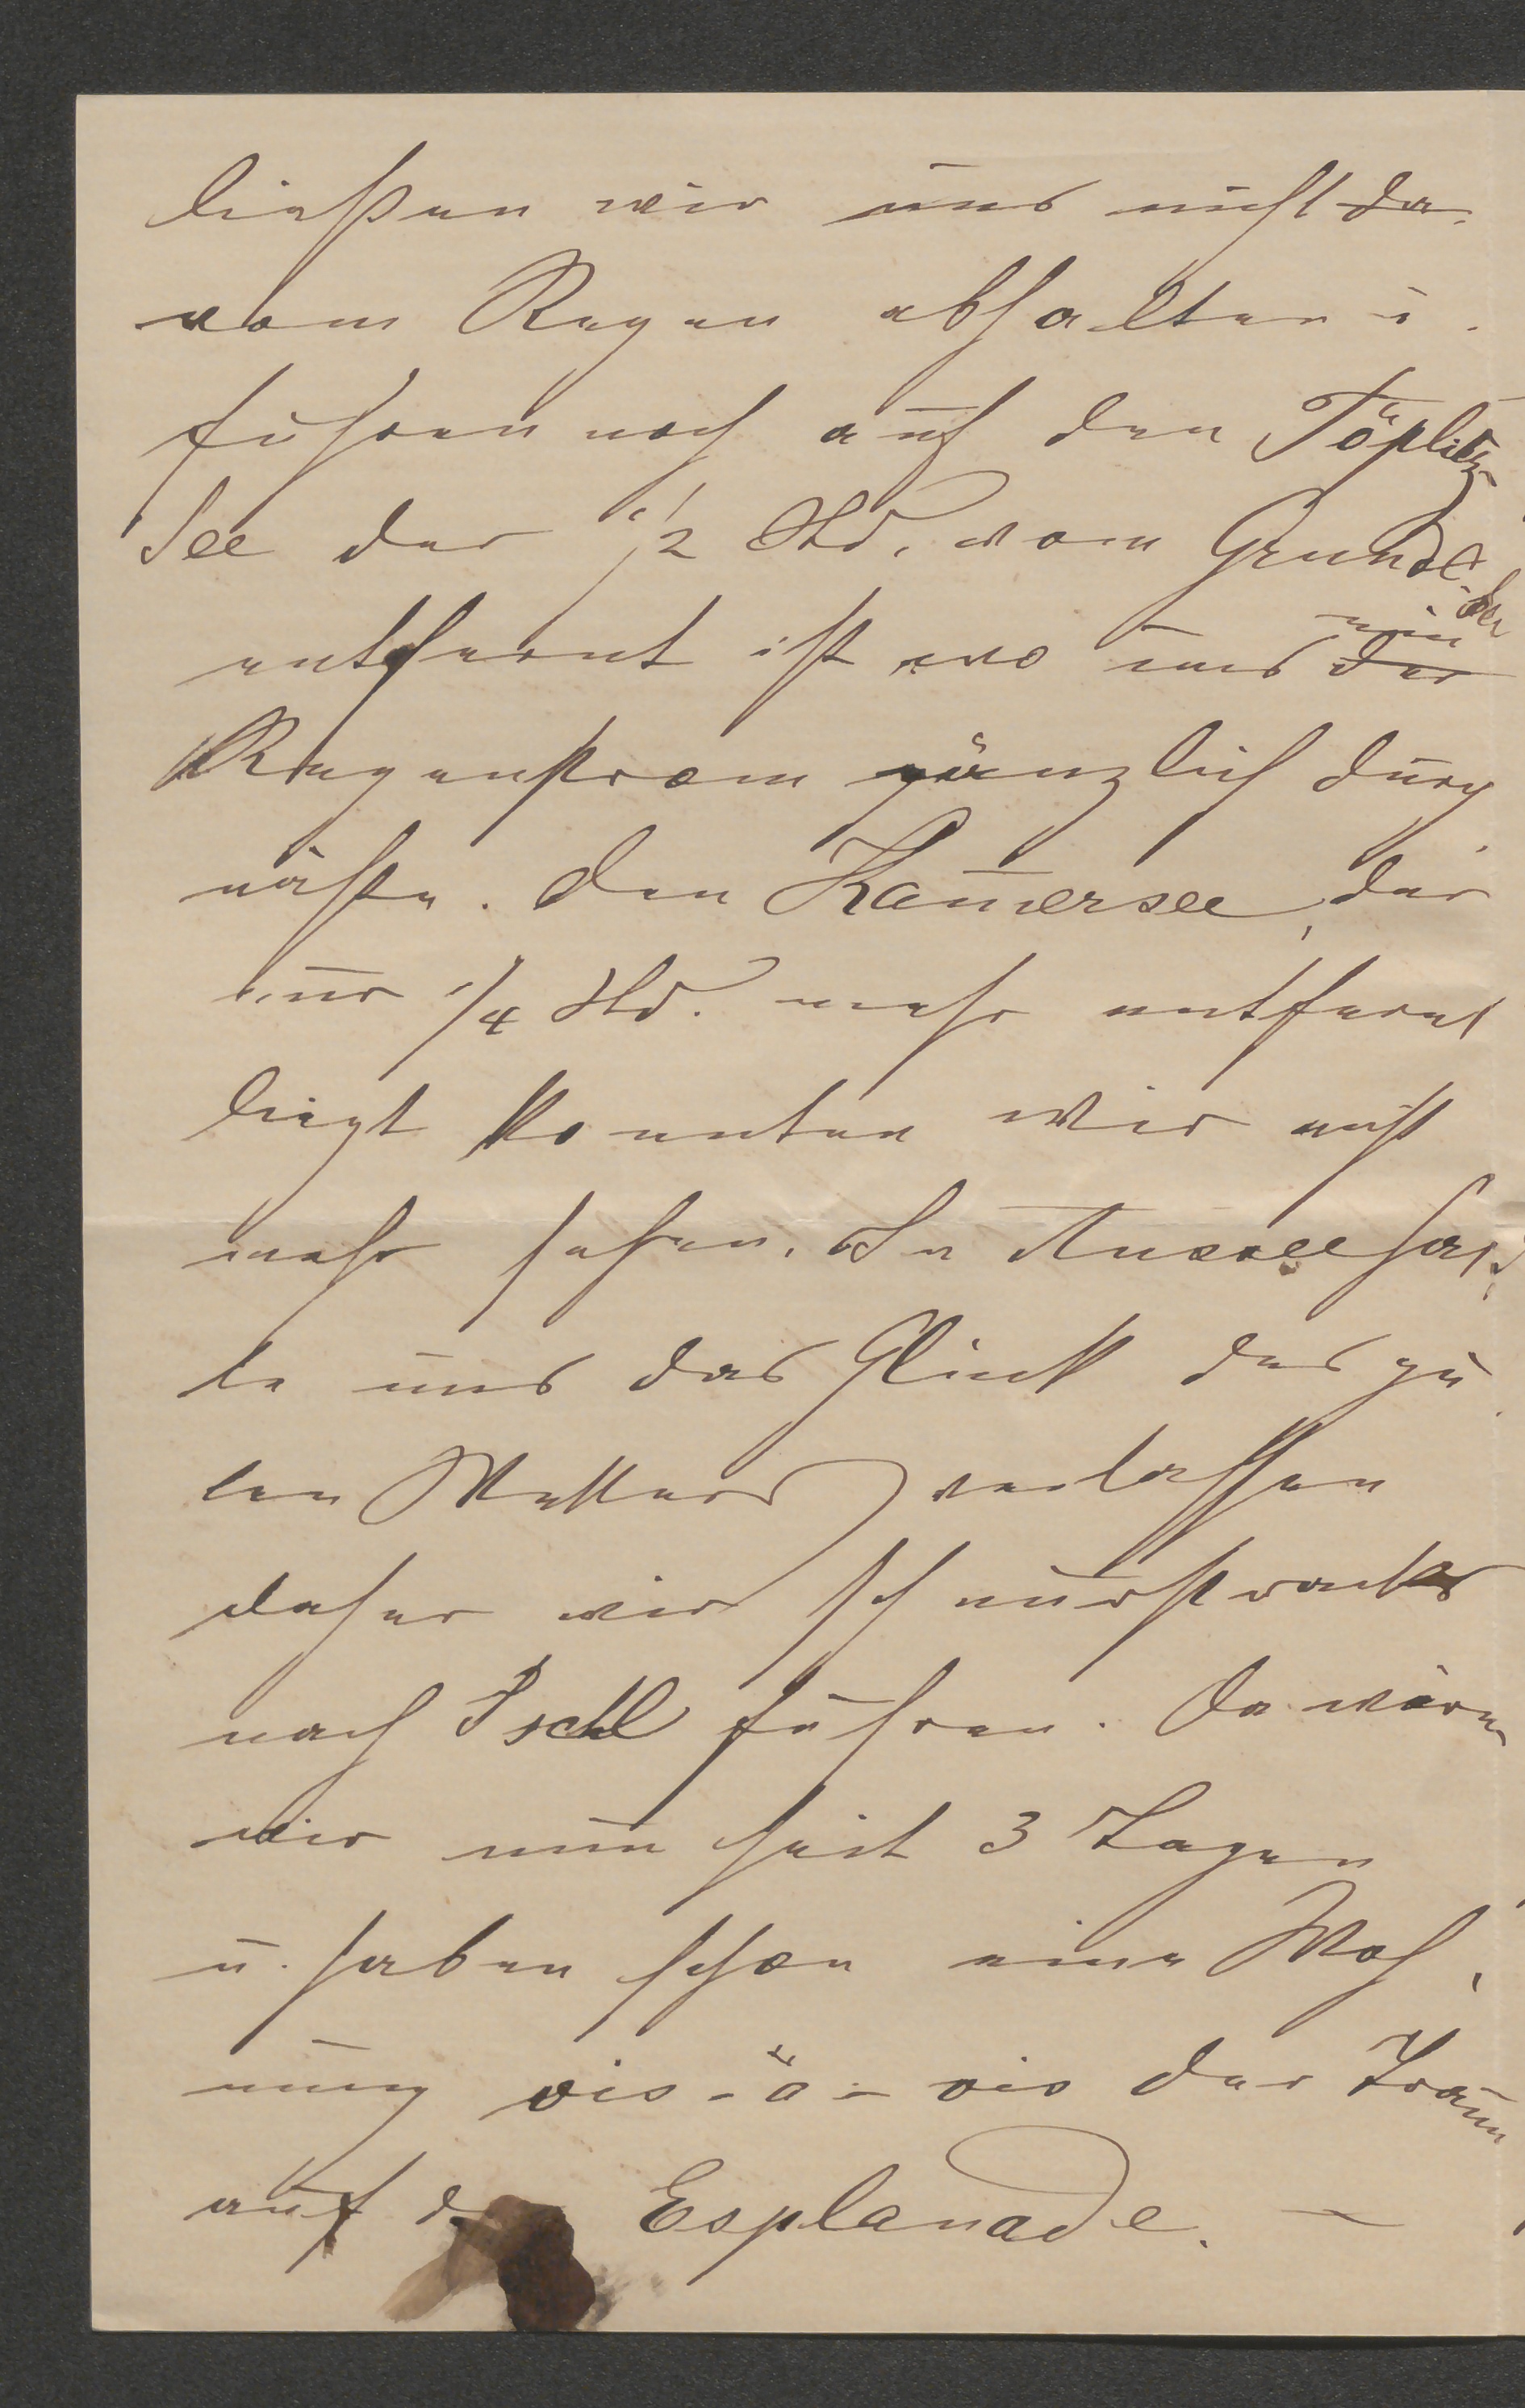 ließen wir uns nicht da
vom Regen abhalten u.
fuhren noch auf den Töplitz
See der 1/2 Std. vom Grundl-
see
ein
entfernt ist wo uns der
Regenstrom gänzlich durch
näßte. Den Kam̄ersee, der
nur 1/4 Std. mehr entfernt
liegt konnten wir nicht
mehr sehen. In Aussee hat
te uns das Glück des gu
ten Wetters verlassen
daher wir schnurstracks
nach Ischl fuhren. Da wären
wir nun seit 3 Tagen
u. haben schon eine Woh,
nung vis-à-vis der Traun
auf der Esplanade. —